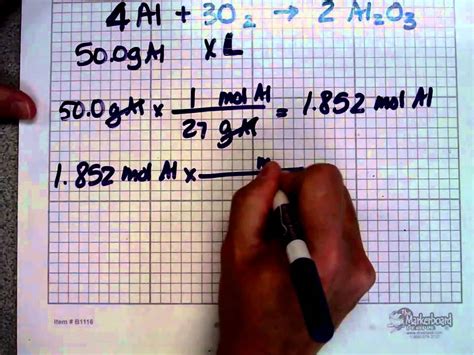 4Al + 3O₂ → 2Al₂O₃
50.0gAl x L
50.0gAl x 1 mol Al / 27 gAl = 1.852 mol Al
1.852 mol Al x m
Item # B1116
The Markerboard